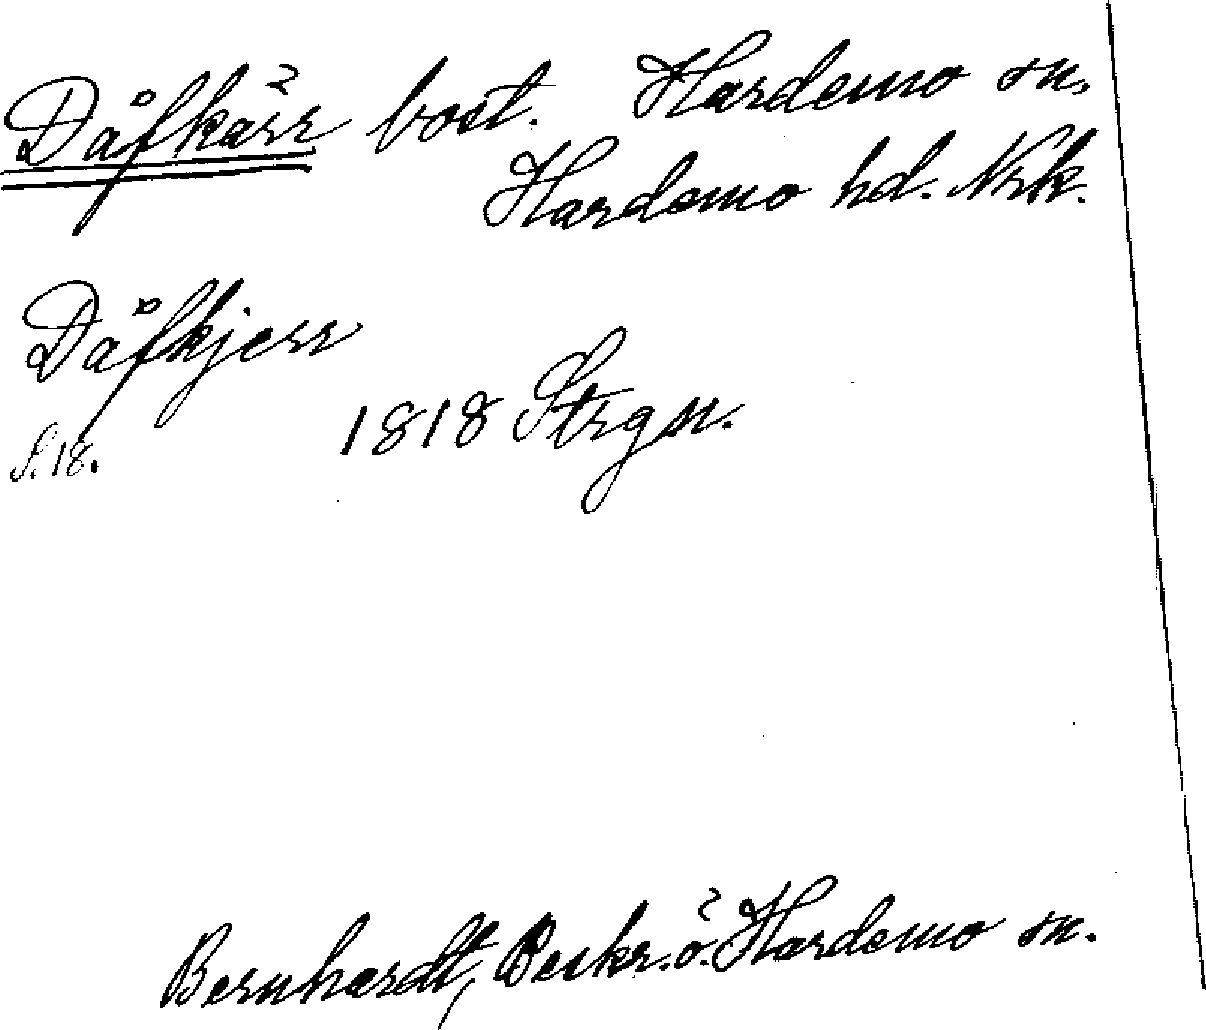 Dåfkärr bost. Hardemo sn.
Hardemo hd. Nrk.
Dåfkjerr
S. 18. 1818 Strgsn.
Bernhardt, Beskr. ö. Hardemo sn.